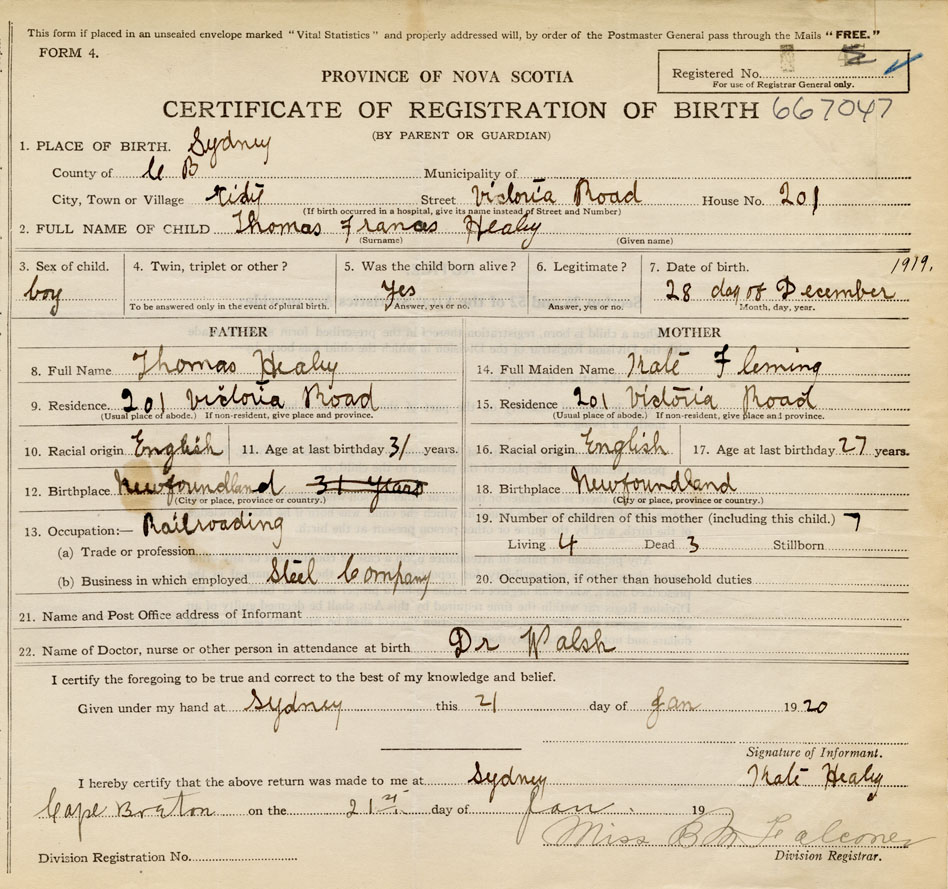 This form if placed in an unsealed envelope marked "Vital Statistics" and properly addressed will, by order of the Postmaster General pass through the Mails "FREE."
FORM 4.
Registered No.
For use of Registrar General only.
PROVINCE OF NOVA SCOTIA
CERTIFICATE OF REGISTRATION OF BIRTH 667047
(BY PARENT OR GUARDIAN)
1. PLACE OF BIRTH. Sydney
County of C B Municipality of
City, Town or Village City Street Victoria Road House No. 201
(If birth occurred in a hospital, give its name instead of Street and Number)
2. FULL NAME OF CHILD Thomas Francis Healy
(Surname) (Given name)
3. Sex of child. 4. Twin, triplet or other? 5. Was the child born alive? 6. Legitimate? 7. Date of birth. 1919.
boy Yes 28 day of December
To be answered only in the event of plural birth. Answer, yes or no. Answer, yes or no. Month, day, year.
FATHER MOTHER
8. Full Name Thomas Healy 14. Full Maiden Name Kate Fleming
9. Residence. 201 Victoria Road 15. Residence 201 Victoria Road
(Usual place of abode.) If non-resident, give place and province. (Usual place of abode.) If non-resident, give place and province.
10. Racial origin English 11. Age at last birthday 31 years. 16. Racial origin English 17. Age at last birthday 27 years.
12. Birthplace Newfoundland 31 Years 18. Birthplace Newfoundland
(City or place, province or country.) (City or place, province or country.)
13. Occupation:— Railroading 19. Number of children of this mother (including this child.) 7
(a) Trade or profession Living 4 Dead 3 Stillborn
(b) Business in which employed Steel Company 20. Occupation, if other than household duties
21. Name and Post Office address of Informant
22. Name of Doctor, nurse or other person in attendance at birth Dr Walsh
I certify the foregoing to be true and correct to the best of my knowledge and belief.
Given under my hand at Sydney this 21 day of Jan 1920
Signature of Informant.
I hereby certify that the above return was made to me at Sydney Kate Healy
Cape Breton on the 21st day of Jan. 19
Miss B M Falconer
Division Registration No. Division Registrar.